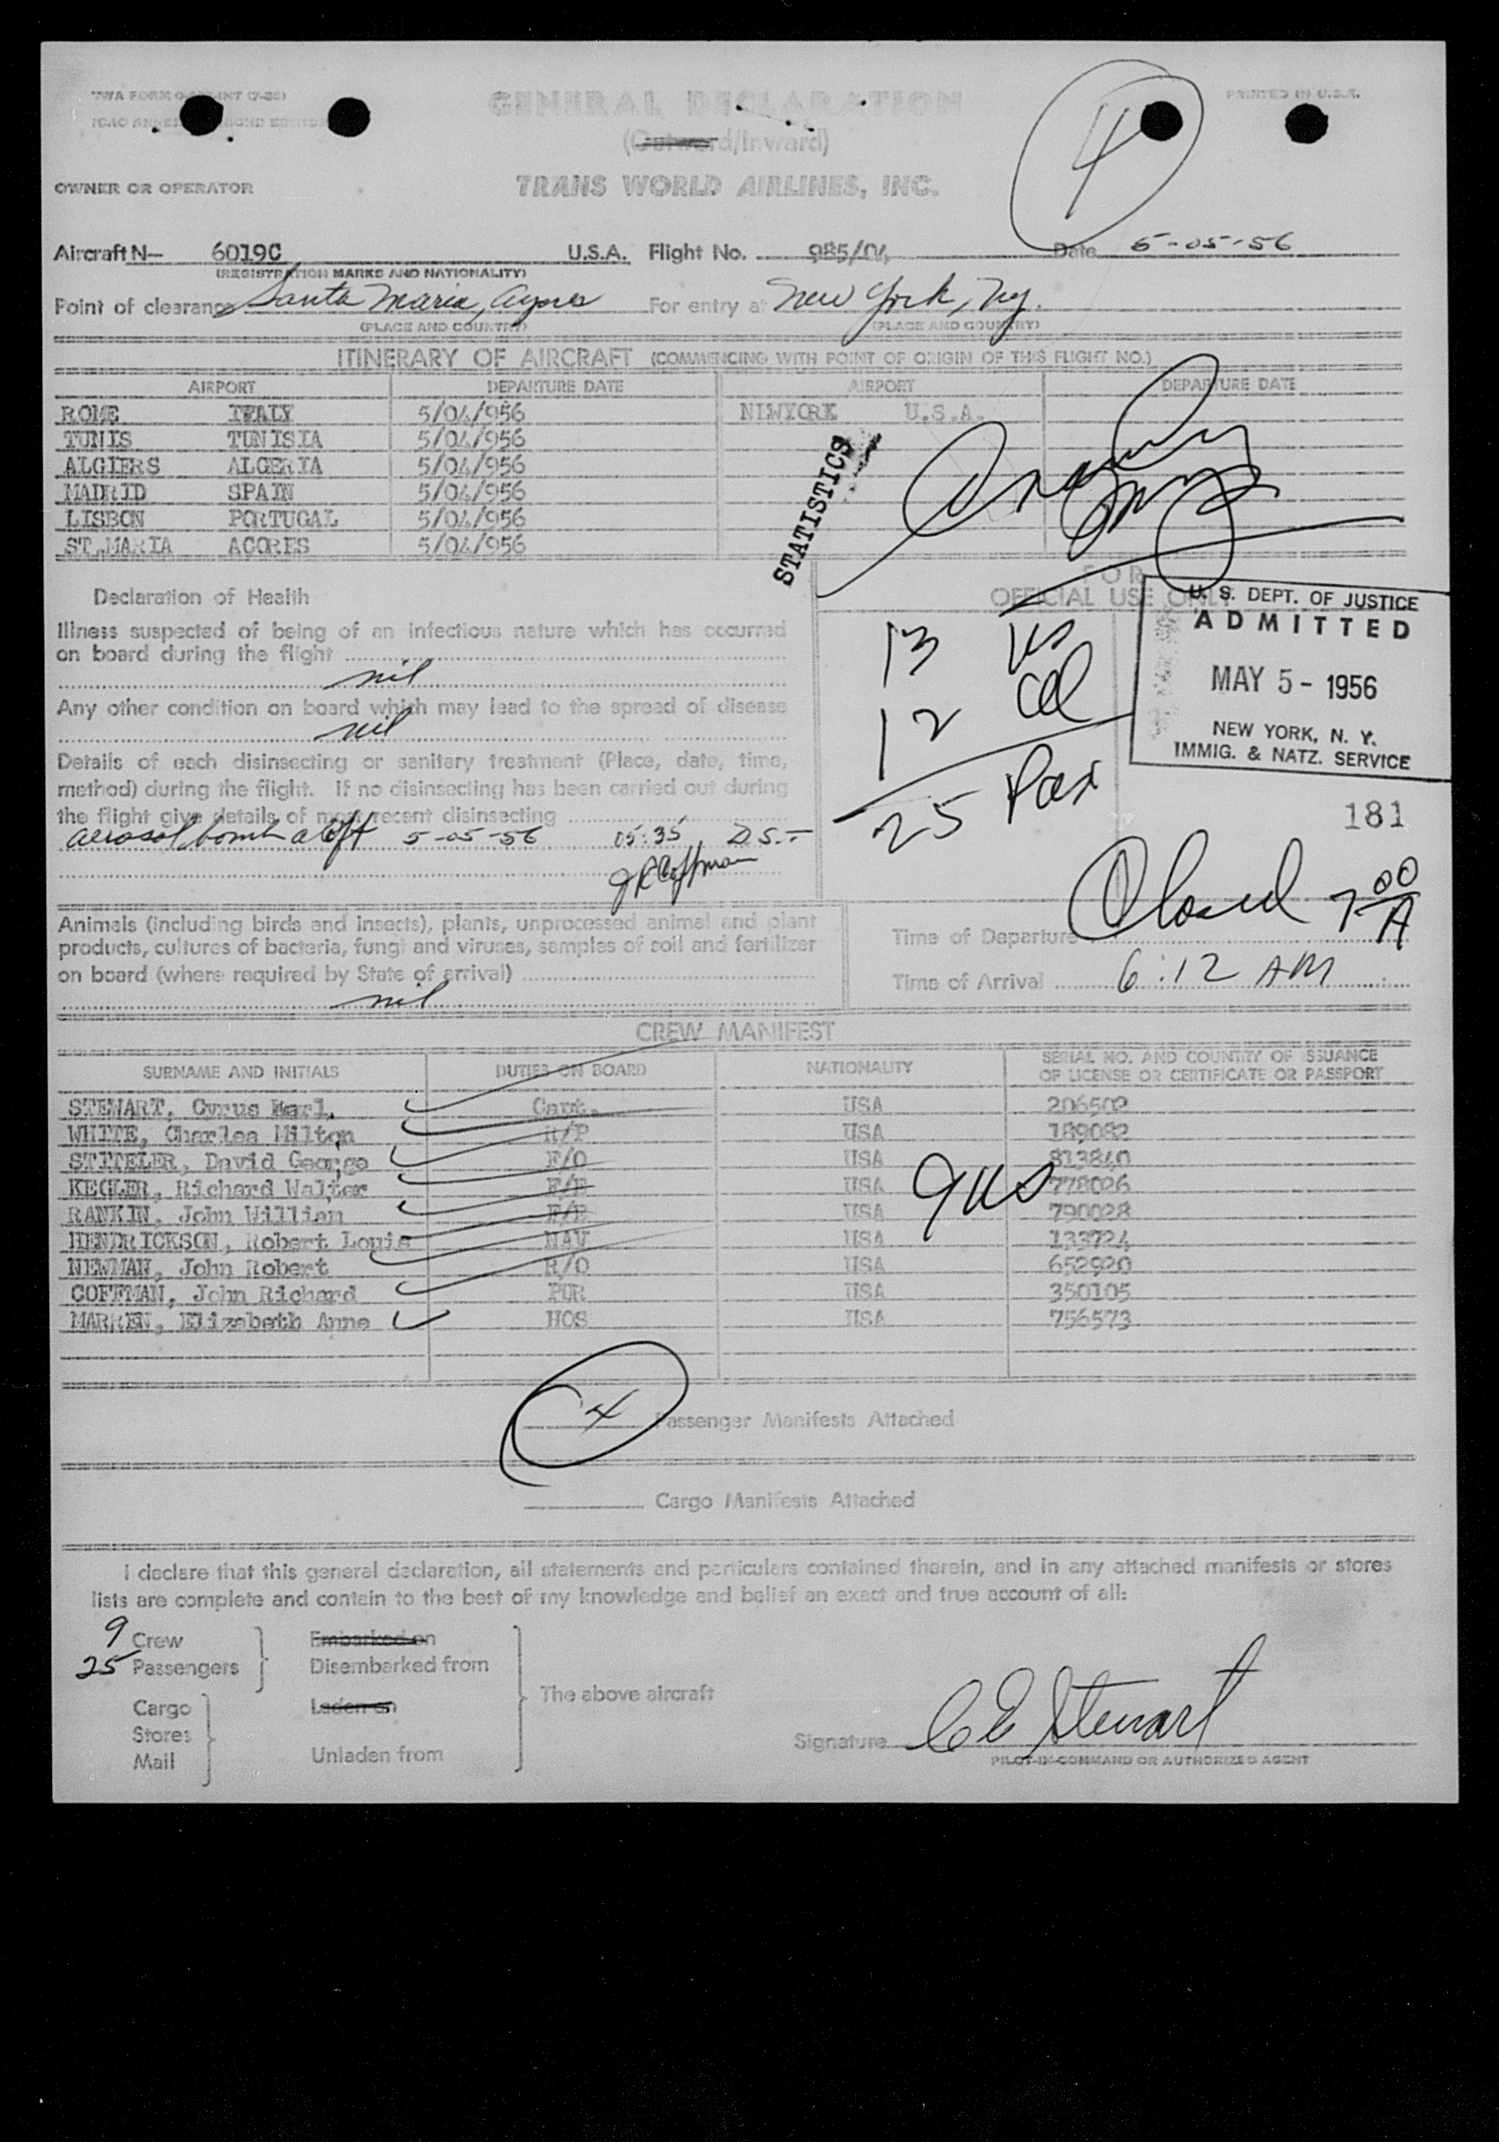 TWA FORM
PRINTED IN U.S.A.
GENERAL DECLARATION
(Outward/Inward)
4
OWNER OR OPERATOR
TRANS WORLD AIRLINES, INC.
Aircraft N- 6019C U.S.A. Flight No. 985/04 Date 5-05-56
(REGISTRATION MARKS AND NATIONALITY)
Point of clearance Santa Maria, For entry at New York, NY.
(PLACE AND COUNTRY) (PLACE AND COUNTRY)
ITINERARY OF AIRCRAFT (COMMENCING WITH POINT OF ORIGIN OF THIS FLIGHT NO.)
AIRPORT DEPARTURE DATE AIRPORT DEPARTURE DATE
ROME ITALY 5/04/956 NEWYORK U.S.A.
TUNIS TUNISIA 5/04/956
ALGIERS ALGERIA 5/04/956
MADRID SPAIN 5/04/956
LISBON PORTUGAL 5/04/956
ST.MARIA ACORES 5/04/956
STATISTICS
FOR
OFFICIAL USE ONLY
U. S. DEPT. OF JUSTICE
ADMITTED
MAY 5 - 1956
NEW YORK, N. Y.
IMMIG. & NATZ. SERVICE
181
13 US
12 Al
25 Pax
Declaration of Health
Illness suspected of being of an infectious nature which has occurred
on board during the flight
nil
Any other condition on board which may lead to the spread of disease
nil
Details of each disinsecting or sanitary treatment (Place, date, time,
method) during the flight. If no disinsecting has been carried out during
the flight give details of most recent disinsecting
aerosol bomb aloft 5-05-56 05:35 DS.-
JR Coffman
Animals (including birds and insects), plants, unprocessed animal and plant
products, cultures of bacteria, fungi and viruses, samples of soil and fertilizer
on board (where required by State of arrival)
nil
Closed 7 00 A
Time of Departure
Time of Arrival 6:12 AM
CREW MANIFEST
SURNAME AND INITIALS DUTIES ON BOARD NATIONALITY SERIAL NO. AND COUNTRY OF ISSUANCE
OF LICENSE OR CERTIFICATE OR PASSPORT
STEWART, Cyrus Earl. Capt. USA 206502
WHITE, Charles Milton R/P USA 189082
STITELER, David George F/O USA 813840
KEGLER, Richard Walter F/E USA 778026
RANKIN, John William F/E USA 790028
HENDRICKSON, Robert Louis NAV USA 133724
NEWMAN, John Robert R/O USA 652920
COFFMAN, John Richard PUR USA 350105
MARREN, Elizabeth Anne HOS USA 756573
9 US
4 Passenger Manifests Attached
Cargo Manifests Attached
I declare that this general declaration, all statements and particulars contained therein, and in any attached manifests or stores
lists are complete and contain to the best of my knowledge and belief an exact and true account of all:
9 Crew Embarked on
25 Passengers Disembarked from
The above aircraft
Cargo Laden on
Stores
Mail Unladen from
Signature C E Stewart
PILOT-IN-COMMAND OR AUTHORIZED AGENT